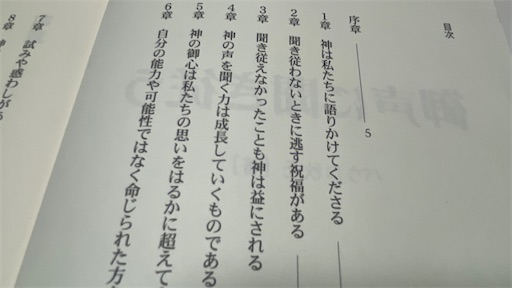 目次
序章 5
1章 神は私たちに語りかけてくださる
2章 聞き従わないときに逃す祝福がある
3章 聞き従えなかったことも神は益にされる
4章 神の声を聞く力は成長していくものである
5章 神の御心は私たちの思いをはるかに超えて
6章 自分の能力や可能性ではなく命じられた方
7章 試みや惑わしがあ
8章 神
御声に聞き従う